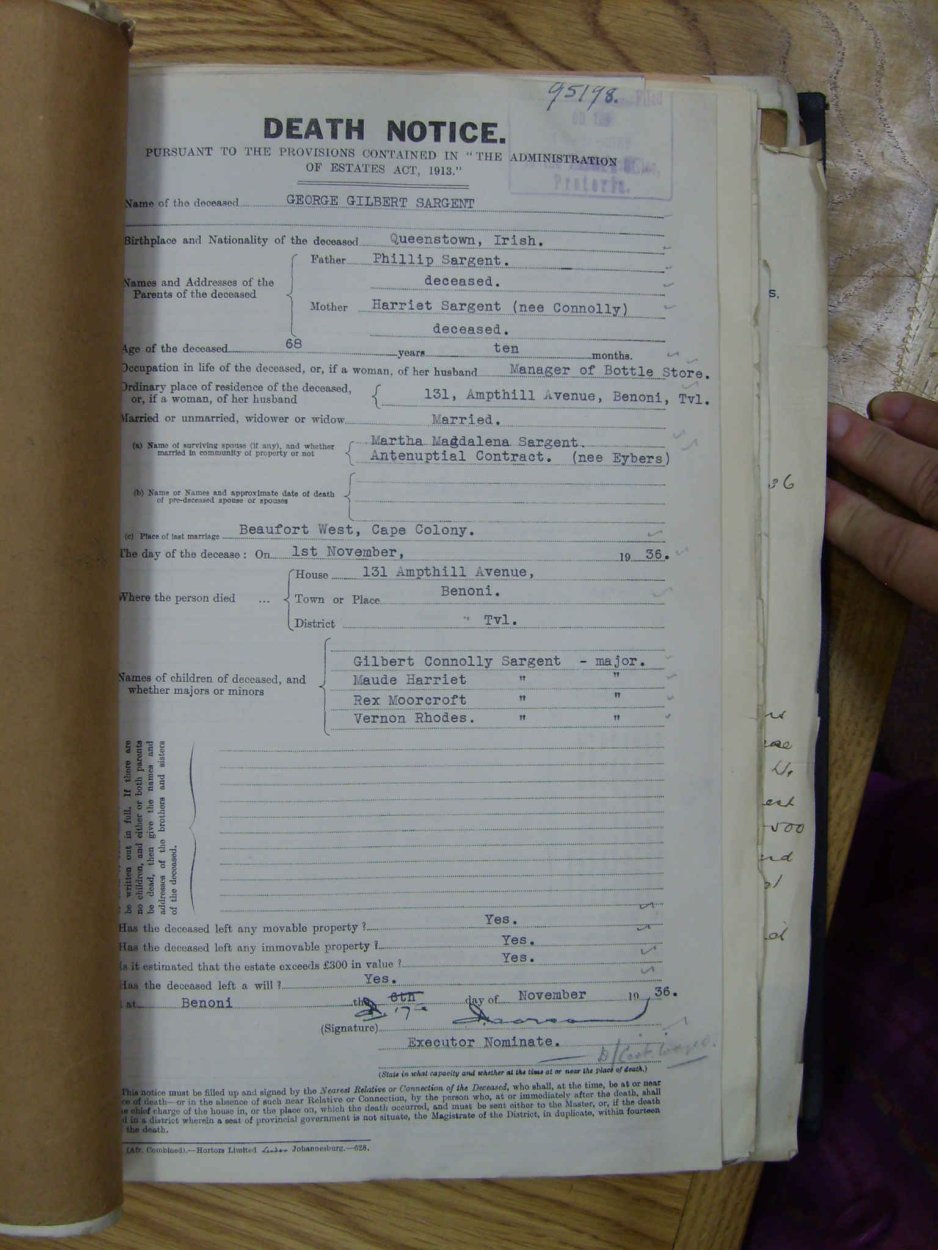 95198.
Filed
on the
Pretoria.
DEATH NOTICE.
PURSUANT TO THE PROVISIONS CONTAINED IN "THE ADMINISTRATION
OF ESTATES ACT, 1913."
Name of the deceased GEORGE GILBERT SARGENT
Birthplace and Nationality of the deceased Queenstown, Irish.
Names and Addresses of the Parents of the deceased
Father Phillip Sargent.
deceased.
Mother Harriet Sargent (nee Connolly)
deceased.
Age of the deceased 68 years ten months.
Occupation in life of the deceased, or, if a woman, of her husband Manager of Bottle Store.
Ordinary place of residence of the deceased,
or, if a woman, of her husband 131, Ampthill Avenue, Benoni, Tvl.
Married or unmarried, widower or widow Married.
(a) Name of surviving spouse (if any), and whether Martha Magdalena Sargent.
married in community of property or not Antenuptial Contract. (nee Eybers)
(b) Name or Names and approximate date of death
of pre-deceased spouse or spouses
(c) Place of last marriage Beaufort West, Cape Colony.
The day of the decease: On 1st November, 19 36.
Where the person died ...
House 131 Ampthill Avenue,
Town or Place Benoni.
District " Tvl.
Names of children of deceased, and
whether majors or minors
Gilbert Connolly Sargent - major.
Maude Harriet " "
Rex Moorcroft " "
Vernon Rhodes. " "
be written out in full. If there are
no children, and either or both parents
be dead, then give the names and
addresses of the brothers and sisters
of the deceased.
Has the deceased left any movable property? Yes.
Has the deceased left any immovable property? Yes.
Is it estimated that the estate exceeds £300 in value? Yes.
Has the deceased left a will? Yes.
at Benoni the 6th day of November 19 36.
(Signature)
Executor Nominate.
(State in what capacity and whether at the time at or near the place of death.)
This notice must be filled up and signed by the Nearest Relative or Connection of the Deceased, who shall, at the time, be at or near
of death—or in the absence of such near Relative or Connection, by the person who, at or immediately after the death, shall
chief charge of the house in, or the place on, which the death occurred, and must be sent either to the Master, or, if the death
in a district wherein a seat of provincial government is not situate, the Magistrate of the District, in duplicate, within fourteen
the death.
(Afr. Combined).—Hortors Limited Johannesburg.—628.
s.
36
500